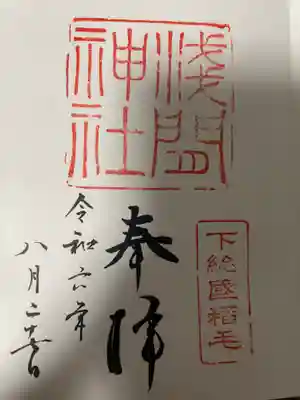 淺間
神社
下総國稲毛
奉拝
令和六年
八月二十 日